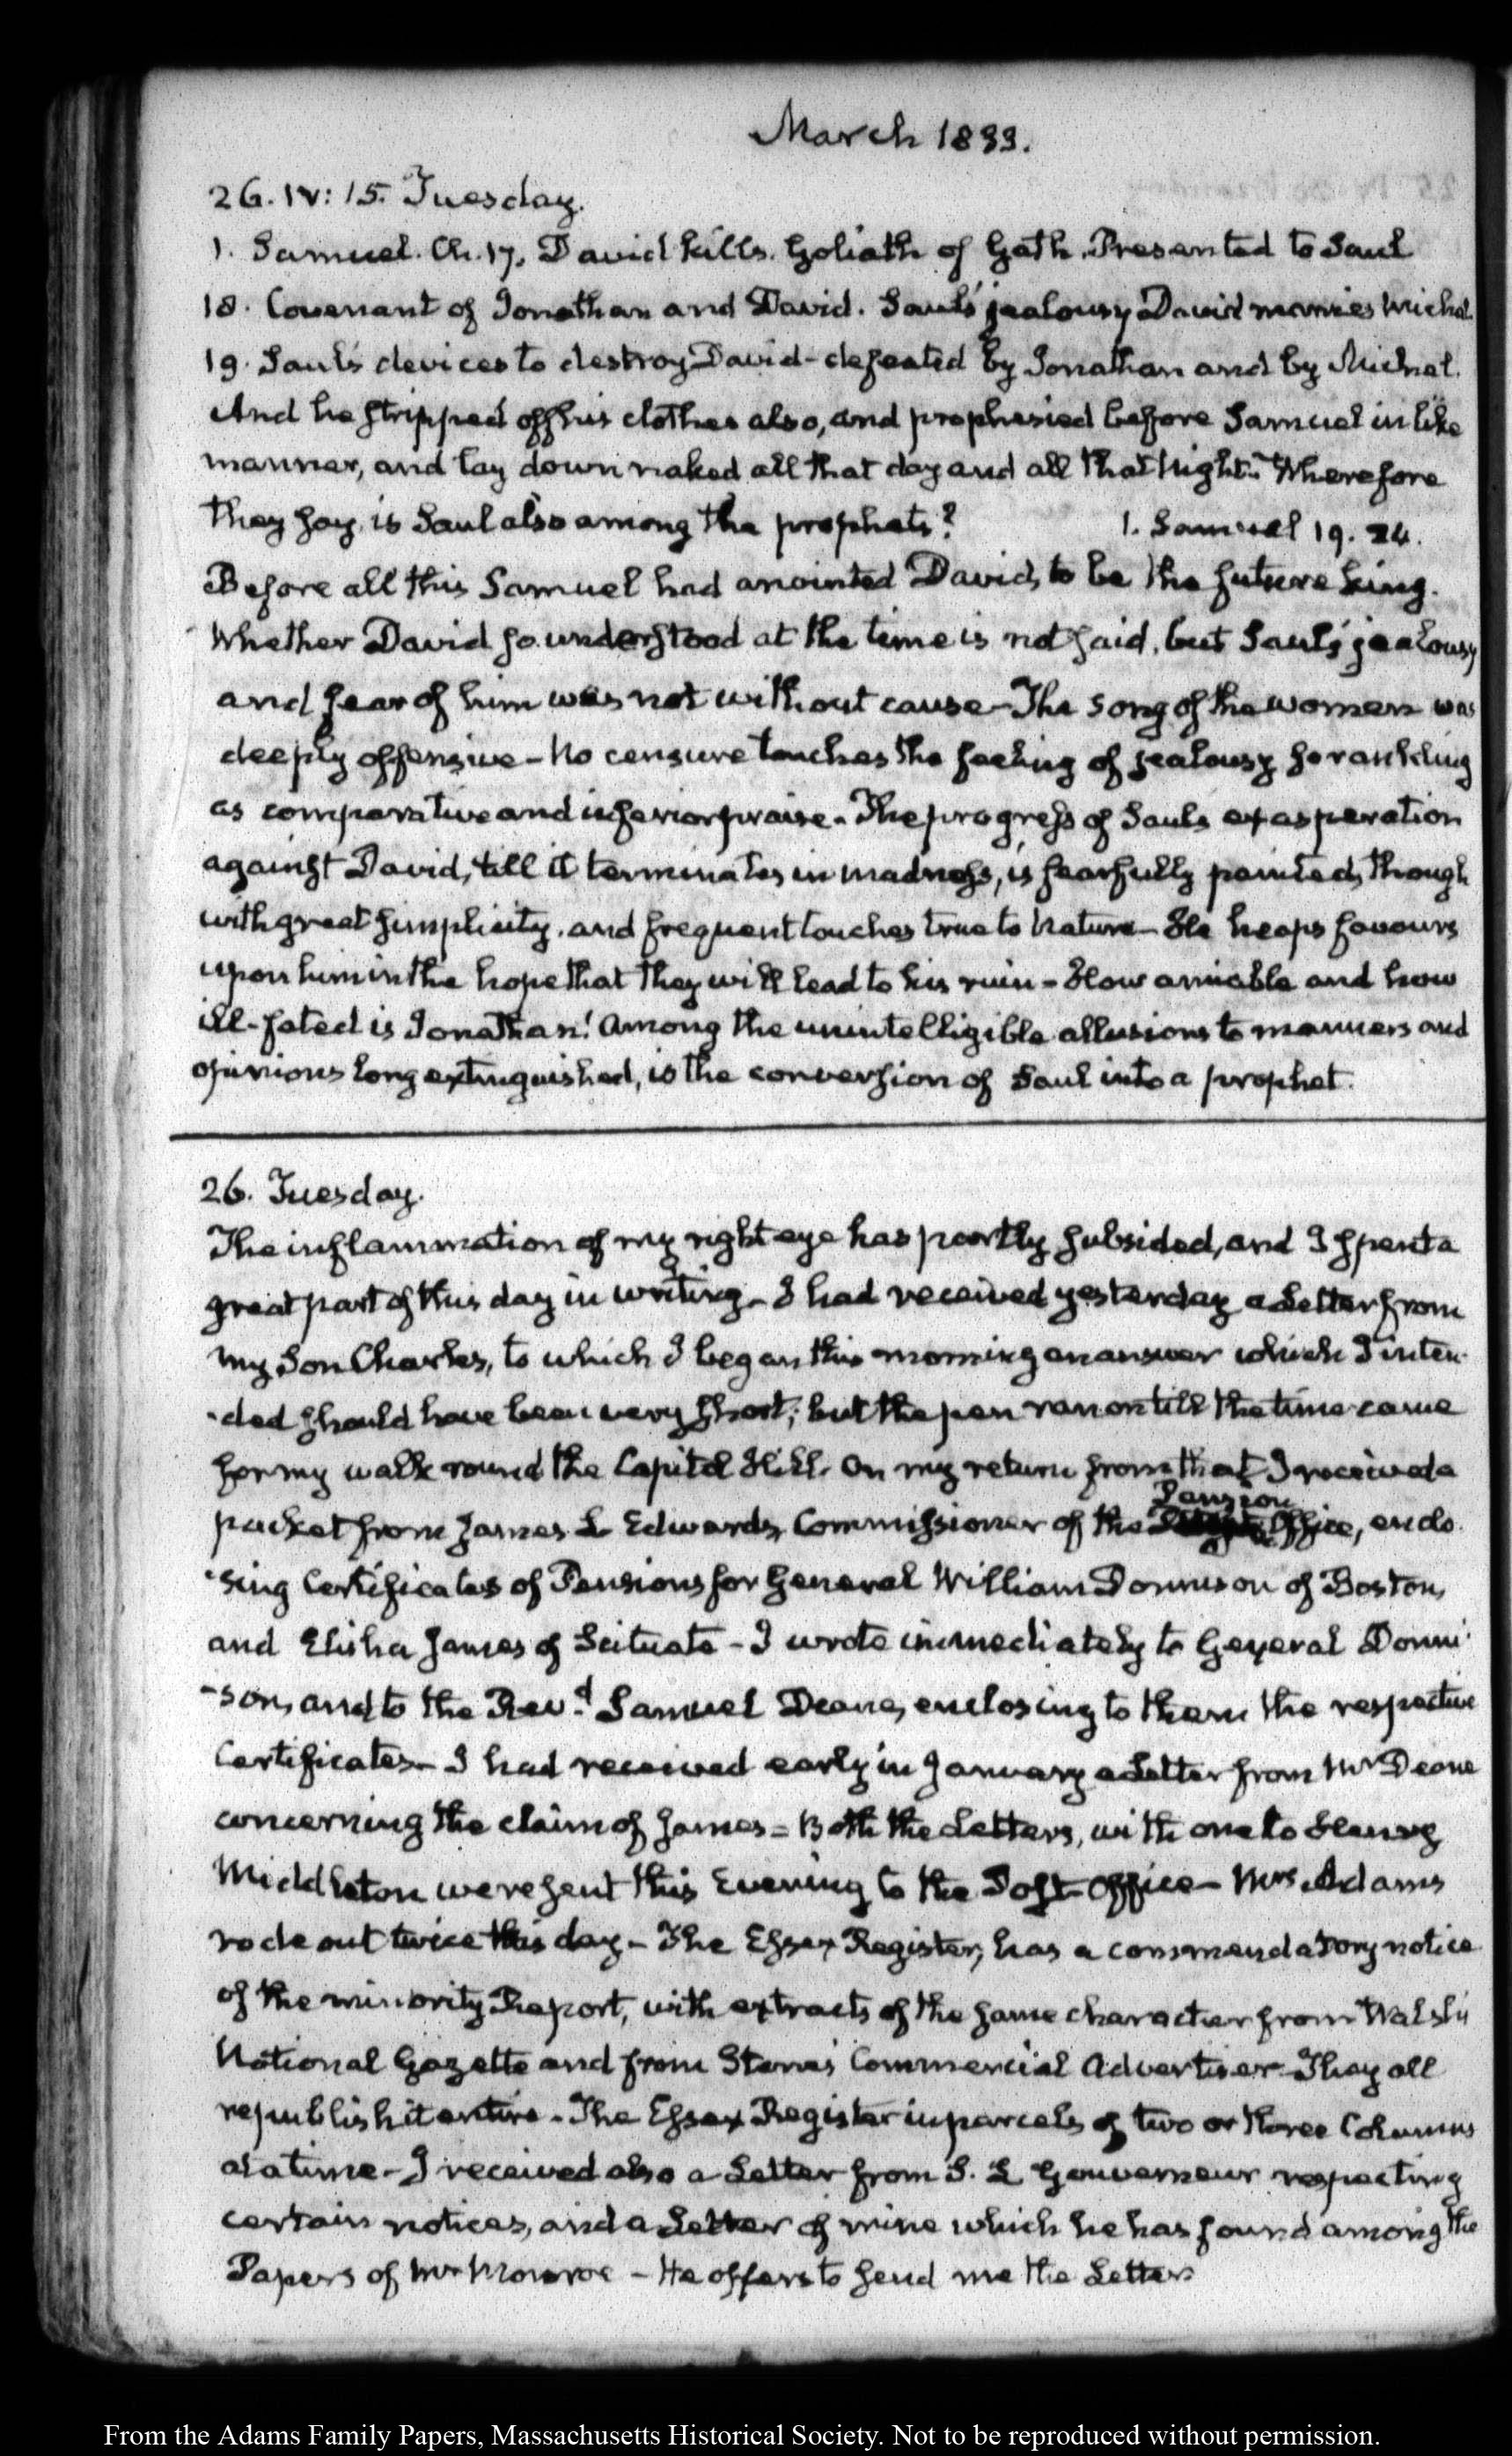 March 1833.
26. IV: 15. Tuesday.
1. Samuel. Ch. 17. David kills. Goliath of Gath. Presented to Saul
18. Covenant of Jonathan and David. Saul's jealousy David marries Michal.
19. Saul's devices to destroy David - defeated by Jonathan and by Michal.
And he stripped off his clothes also, and prophesied before Samuel in like
manner, and lay down naked all that day and all that Night. Wherefore
they say, is Saul also among the prophets? 1. Samuel 19. 24.
Before all this Samuel had anointed David, to be the future king.
Whether David so understood at the time is not said, but Saul's jealousy
and fear of him was not without cause - The song of the women was
deeply offensive - No censure touches the feeling of jealousy so rankling
as comparative and inferior praise - The progress of Sauls exasperation
against David, till it terminates in madness, is fearfully painted, though
with great simplicity, and frequent touches true to Nature - He heaps favours
upon him in the hope that they will lead to his ruin - How amiable and how
ill-fated is Jonathan! Among the unintelligible allusions to manners and
opinions long extinguished, is the conversion of Saul into a prophet.
26. Tuesday.
The inflammation of my right eye has partly subsided, and I spent a
great part of this day in writing - I had received yesterday a Letter from
my Son Charles, to which I began this morning an answer which I inten-
-ded should have been very short; but the pen ran on till the time came
for my walk round the Capitol Hill. On my return from that I received a
packet from James L Edwards, Commissioner of the Pension Office, enclo-
-sing Certificates of Pensions for General William Donnison of Boston,
and Elisha James of Scituate - I wrote immediately to General Donni-
-son, and to the Revd. Samuel Deane, enclosing to them the respective
Certificates - I had received early in January a Letter from Mr Deane
concerning the claim of James - Both the Letters, with one to Henry
Middleton were sent this Evening to the Post-Office - Mrs Adams
rode out twice this day - The Essex Register, has a commendatory notice
of the minority Report, with extracts of the same character from Walsh's
National Gazette and from Stone's Commercial Advertiser - They all
republish it entire - The Essex Register in parcels of two or three Columns
at a time - I received also a Letter from S. L Gouverneur respecting
certain notices, and a Letter of mine which he has found among the
Papers of Mr Monroe - He offers to send me the Letters
From the Adams Family Papers, Massachusetts Historical Society. Not to be reproduced without permission.